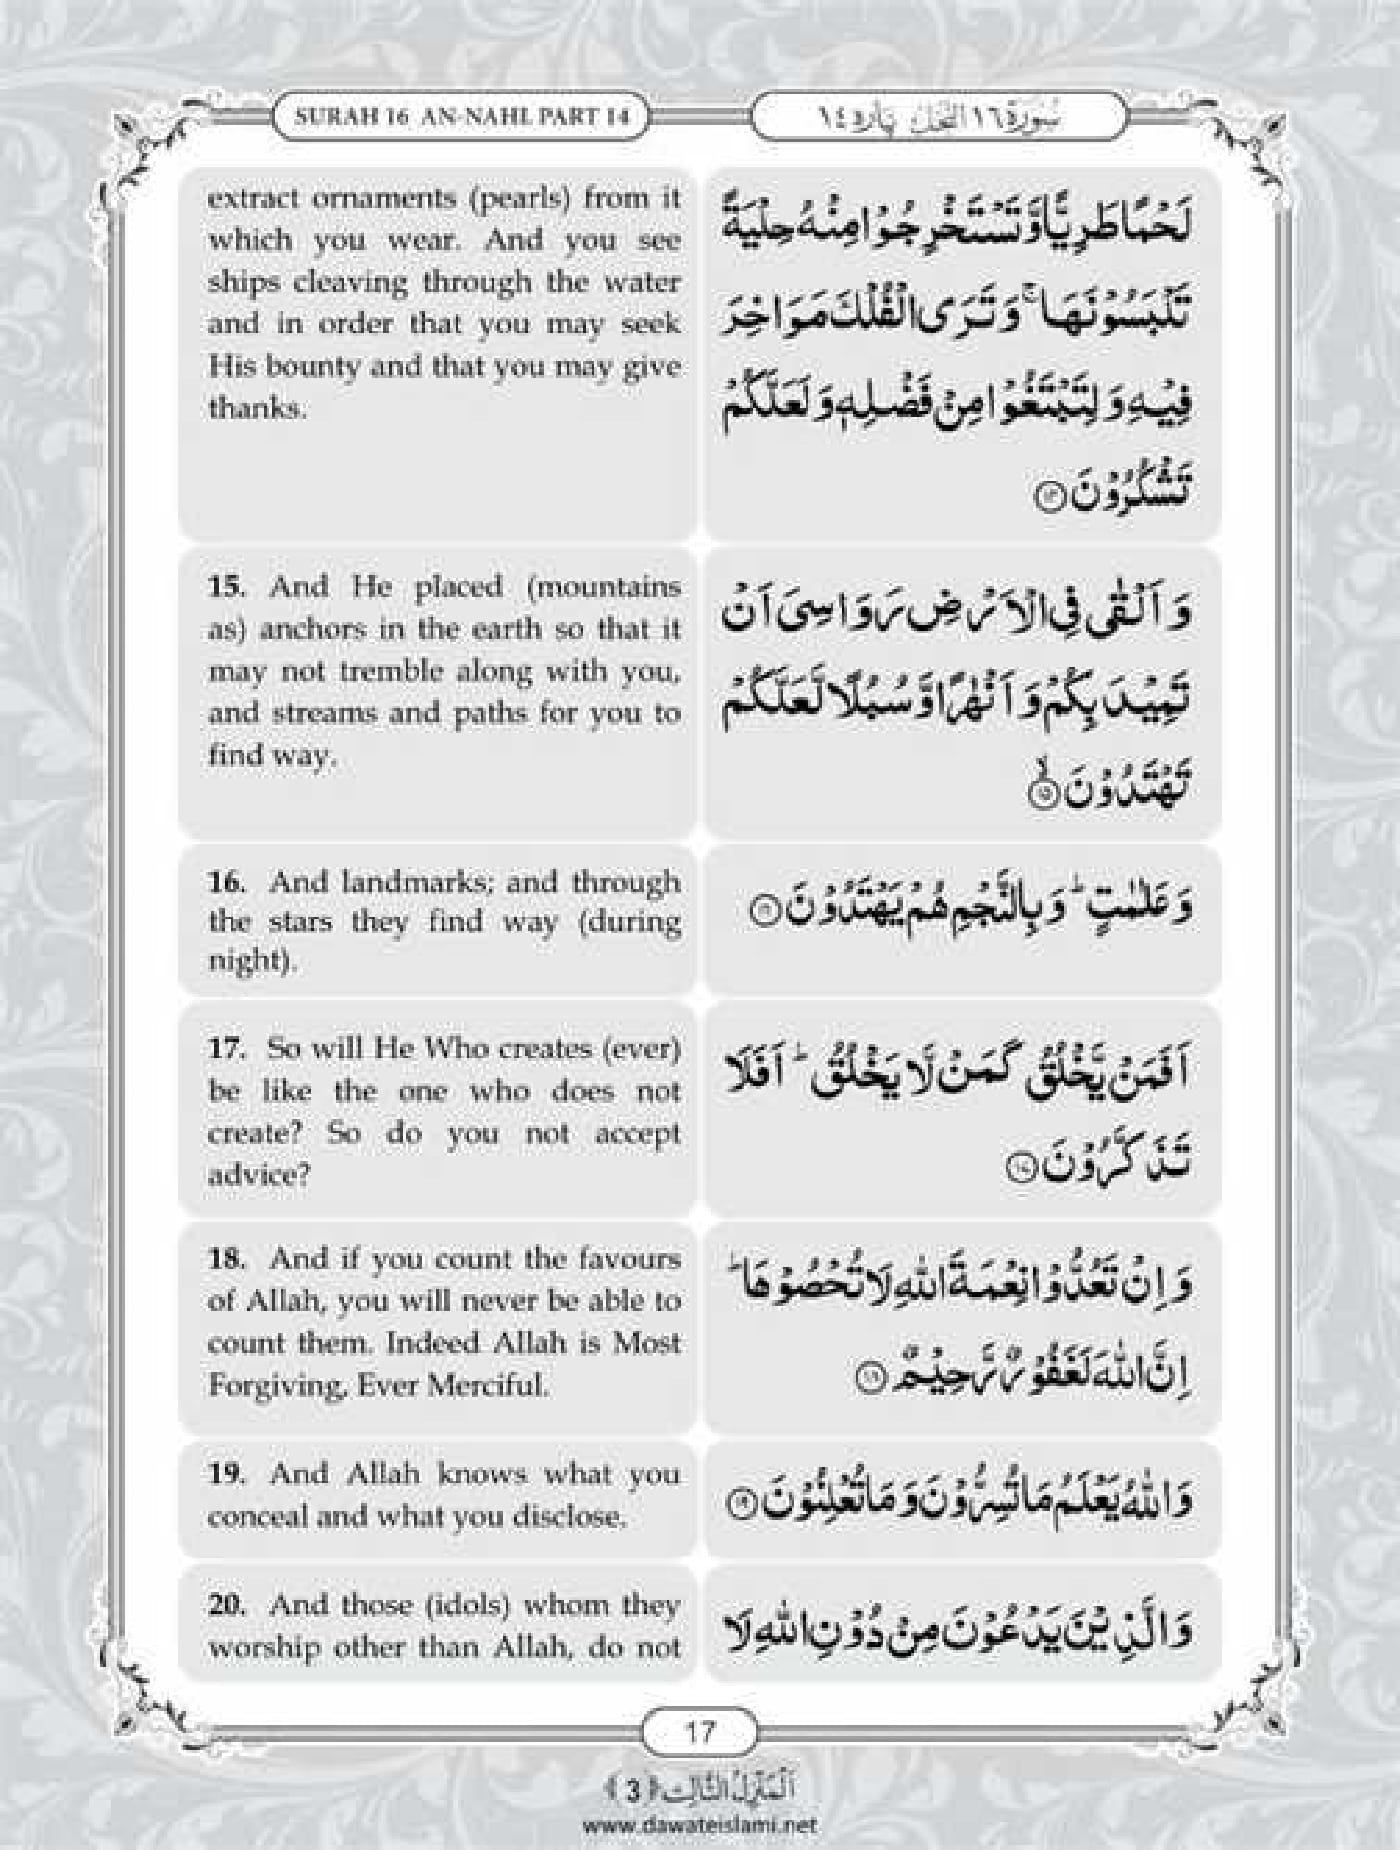 SURAH 16 AN-NAHL PART 14
سُوْرَة ١٦ النَّحْل پارہ ١٤
extract ornaments (pearls) from it
which you wear. And you see
ships cleaving through the water
and in order that you may seek
His bounty and that you may give
thanks.
لَحْمًا طَرِيًّا وَّتَسْتَخْرِجُوْا مِنْهُ حِلْيَةً
تَلْبَسُوْنَهَا ۚ وَتَرَى الْفُلْكَ مَوَاخِرَ
فِيْهِ وَلِتَبْتَغُوْا مِنْ فَضْلِهٖ وَلَعَلَّكُمْ
تَشْكُرُوْنَ
15. And He placed (mountains
as) anchors in the earth so that it
may not tremble along with you,
and streams and paths for you to
find way.
وَاَلْقٰى فِي الْاَرْضِ رَوَاسِيَ اَنْ
تَمِيْدَ بِكُمْ وَاَنْهٰرًا وَّسُبُلًا لَّعَلَّكُمْ
تَهْتَدُوْنَ ۙ ١٥
16. And landmarks; and through
the stars they find way (during
night).
وَعَلٰمٰتٍ ؕ وَبِالنَّجْمِ هُمْ يَهْتَدُوْنَ ١٦
17. So will He Who creates (ever)
be like the one who does not
create? So do you not accept
advice?
اَفَمَنْ يَّخْلُقُ كَمَنْ لَّا يَخْلُقُ ؕ اَفَلَا
تَذَكَّرُوْنَ ١٧
18. And if you count the favours
of Allah, you will never be able to
count them. Indeed Allah is Most
Forgiving, Ever Merciful.
وَاِنْ تَعُدُّوْا نِعْمَةَ اللّٰهِ لَا تُحْصُوْهَا ؕ
اِنَّ اللّٰهَ لَغَفُوْرٌ رَّحِيْمٌ ١٨
19. And Allah knows what you
conceal and what you disclose.
وَاللّٰهُ يَعْلَمُ مَا تُسِرُّوْنَ وَمَا تُعْلِنُوْنَ ١٩
20. And those (idols) whom they
worship other than Allah, do not
وَالَّذِيْنَ يَدْعُوْنَ مِنْ دُوْنِ اللّٰهِ لَا
17
اَلْمَنْزِلُ الثَّالِث ﴿3﴾
www.dawateislami.net